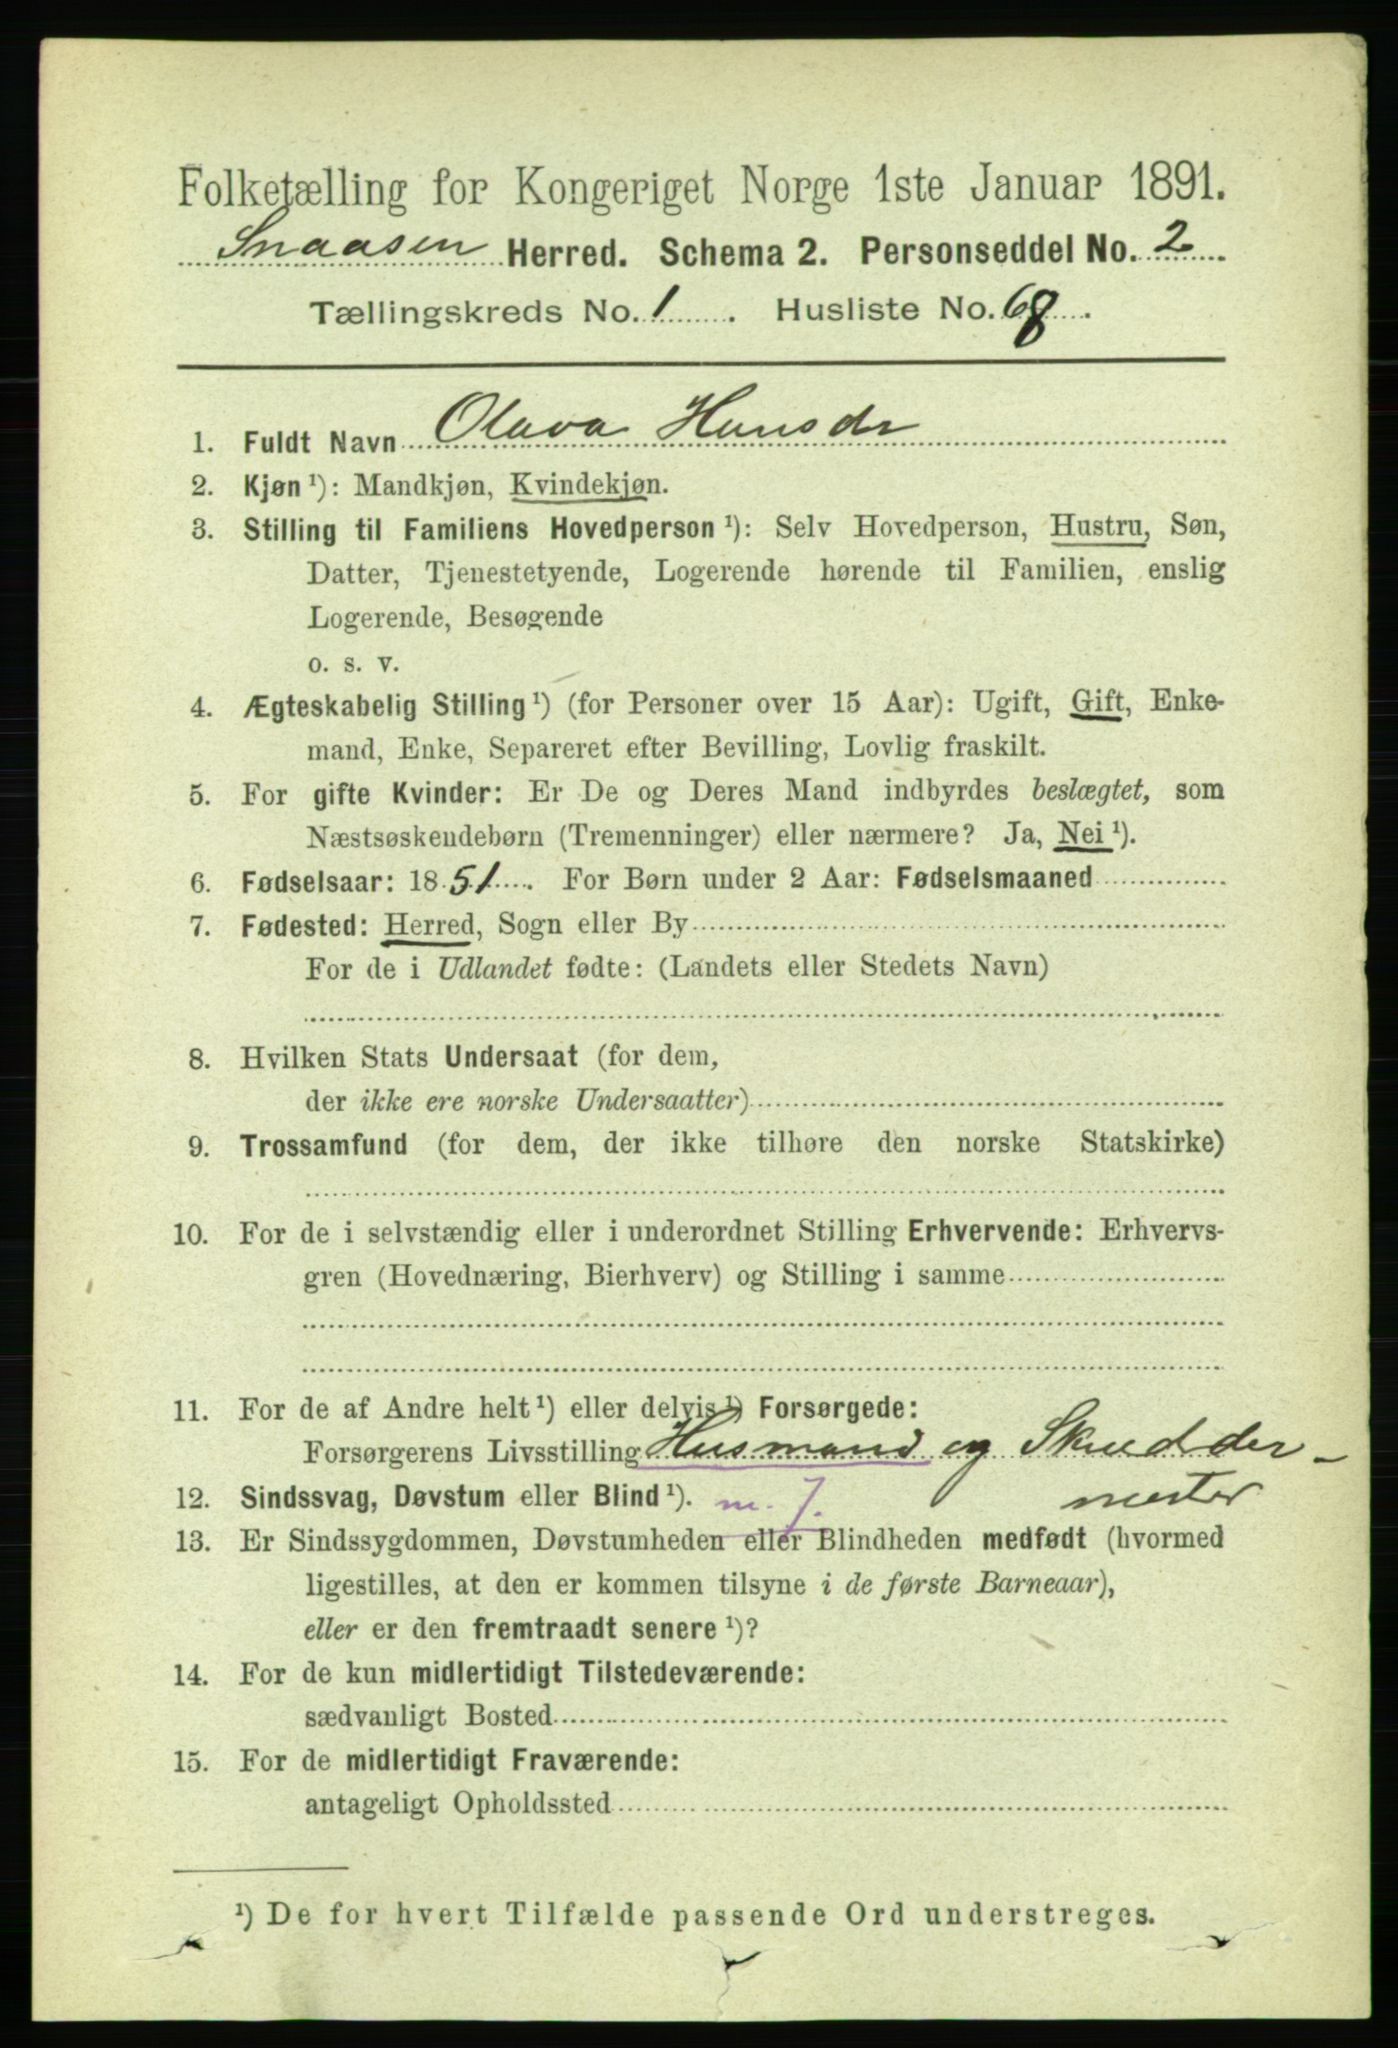 Folketælling for Kongeriget Norge 1ste Januar 1891.
Snaasen Herred. Schema 2. Personseddel No. 2
Tællingskreds No. 1. Husliste No. 68.
1. Fuldt Navn Olava Hansdr
2. Kjøn ¹): Mandkjøn, Kvindekjøn.
3. Stilling til Familiens Hovedperson ¹): Selv Hovedperson, Hustru, Søn,
Datter, Tjenestetyende, Logerende hørende til Familien, enslig
Logerende, Besøgende
o. s. v.
4. Ægteskabelig Stilling ¹) (for Personer over 15 Aar): Ugift, Gift, Enke-
mand, Enke, Separeret efter Bevilling, Lovlig fraskilt.
5. For gifte Kvinder: Er De og Deres Mand indbyrdes beslægtet, som
Næstsøskendebørn (Tremenninger) eller nærmere? Ja, Nei ¹).
6. Fødselsaar: 1851. For Børn under 2 Aar: Fødselsmaaned
7. Fødested: Herred, Sogn eller By
For de i Udlandet fødte: (Landets eller Stedets Navn)
8. Hvilken Stats Undersaat (for dem,
der ikke ere norske Undersaatter)
9. Trossamfund (for dem, der ikke tilhøre den norske Statskirke)
10. For de i selvstændig eller i underordnet Stilling Erhvervende: Erhvervs-
gren (Hovednæring, Bierhverv) og Stilling i samme
11. For de af Andre helt ¹) eller delvis ¹) Forsørgede:
Forsørgerens Livsstilling Husmand og Skrædder-
12. Sindssvag, Døvstum eller Blind ¹). m. 7. mester
13. Er Sindssygdommen, Døvstumheden eller Blindheden medfødt (hvormed
ligestilles, at den er kommen tilsyne i de første Barneaar),
eller er den fremtraadt senere ¹)?
14. For de kun midlertidigt Tilstedeværende:
sædvanligt Bosted
15. For de midlertidigt Fraværende:
antageligt Opholdssted
¹) De for hvert Tilfælde passende Ord understreges.